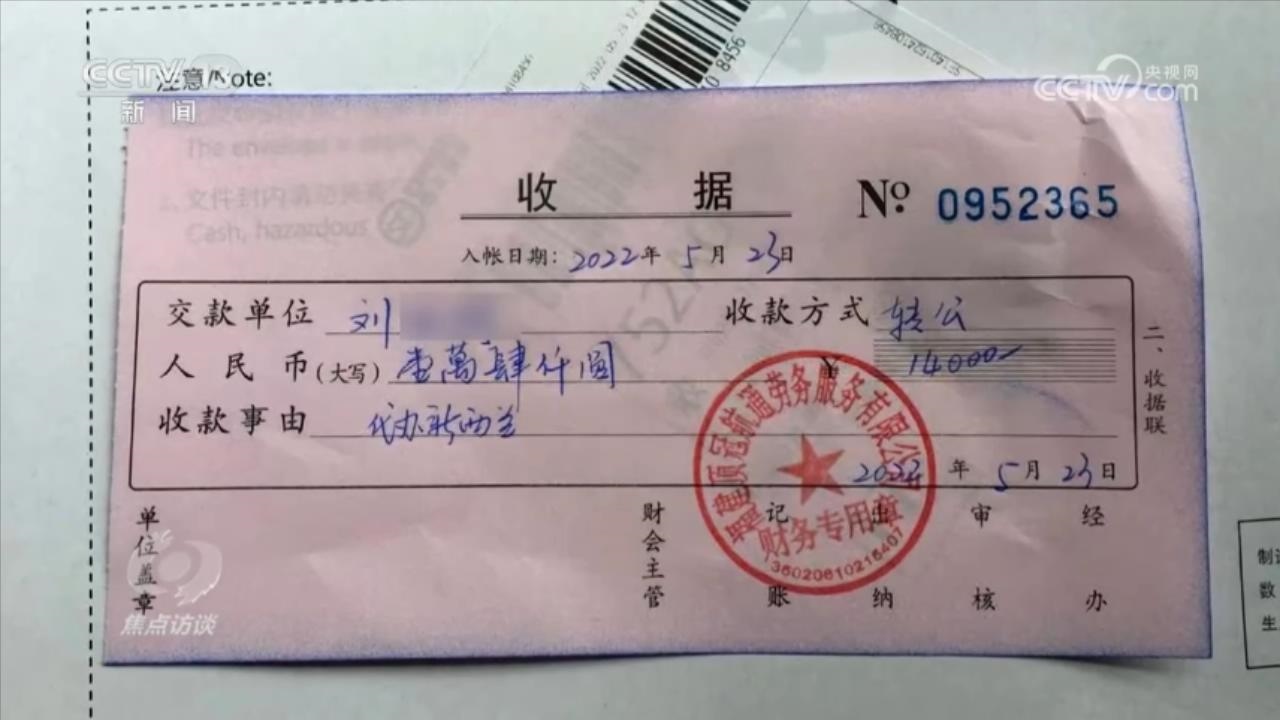 CCTV 13
新闻
央视网
CCTV.com
注意/Note:
The envelope
文件封内请勿夹
Cash, hazardous
收据
№ 0952365
入帐日期：2022年5月23日
交款单位 刘 收款方式 转公
人民币（大写） 壹萬肆仟圆 ¥ 14000
收款事由 代办新西兰
2022年5月23日
二、收据联
单位盖章 财会主管 记账 出纳 审核 经办
顶冠航通劳务服务有限公司
财务专用章
焦点访谈
制
数
生